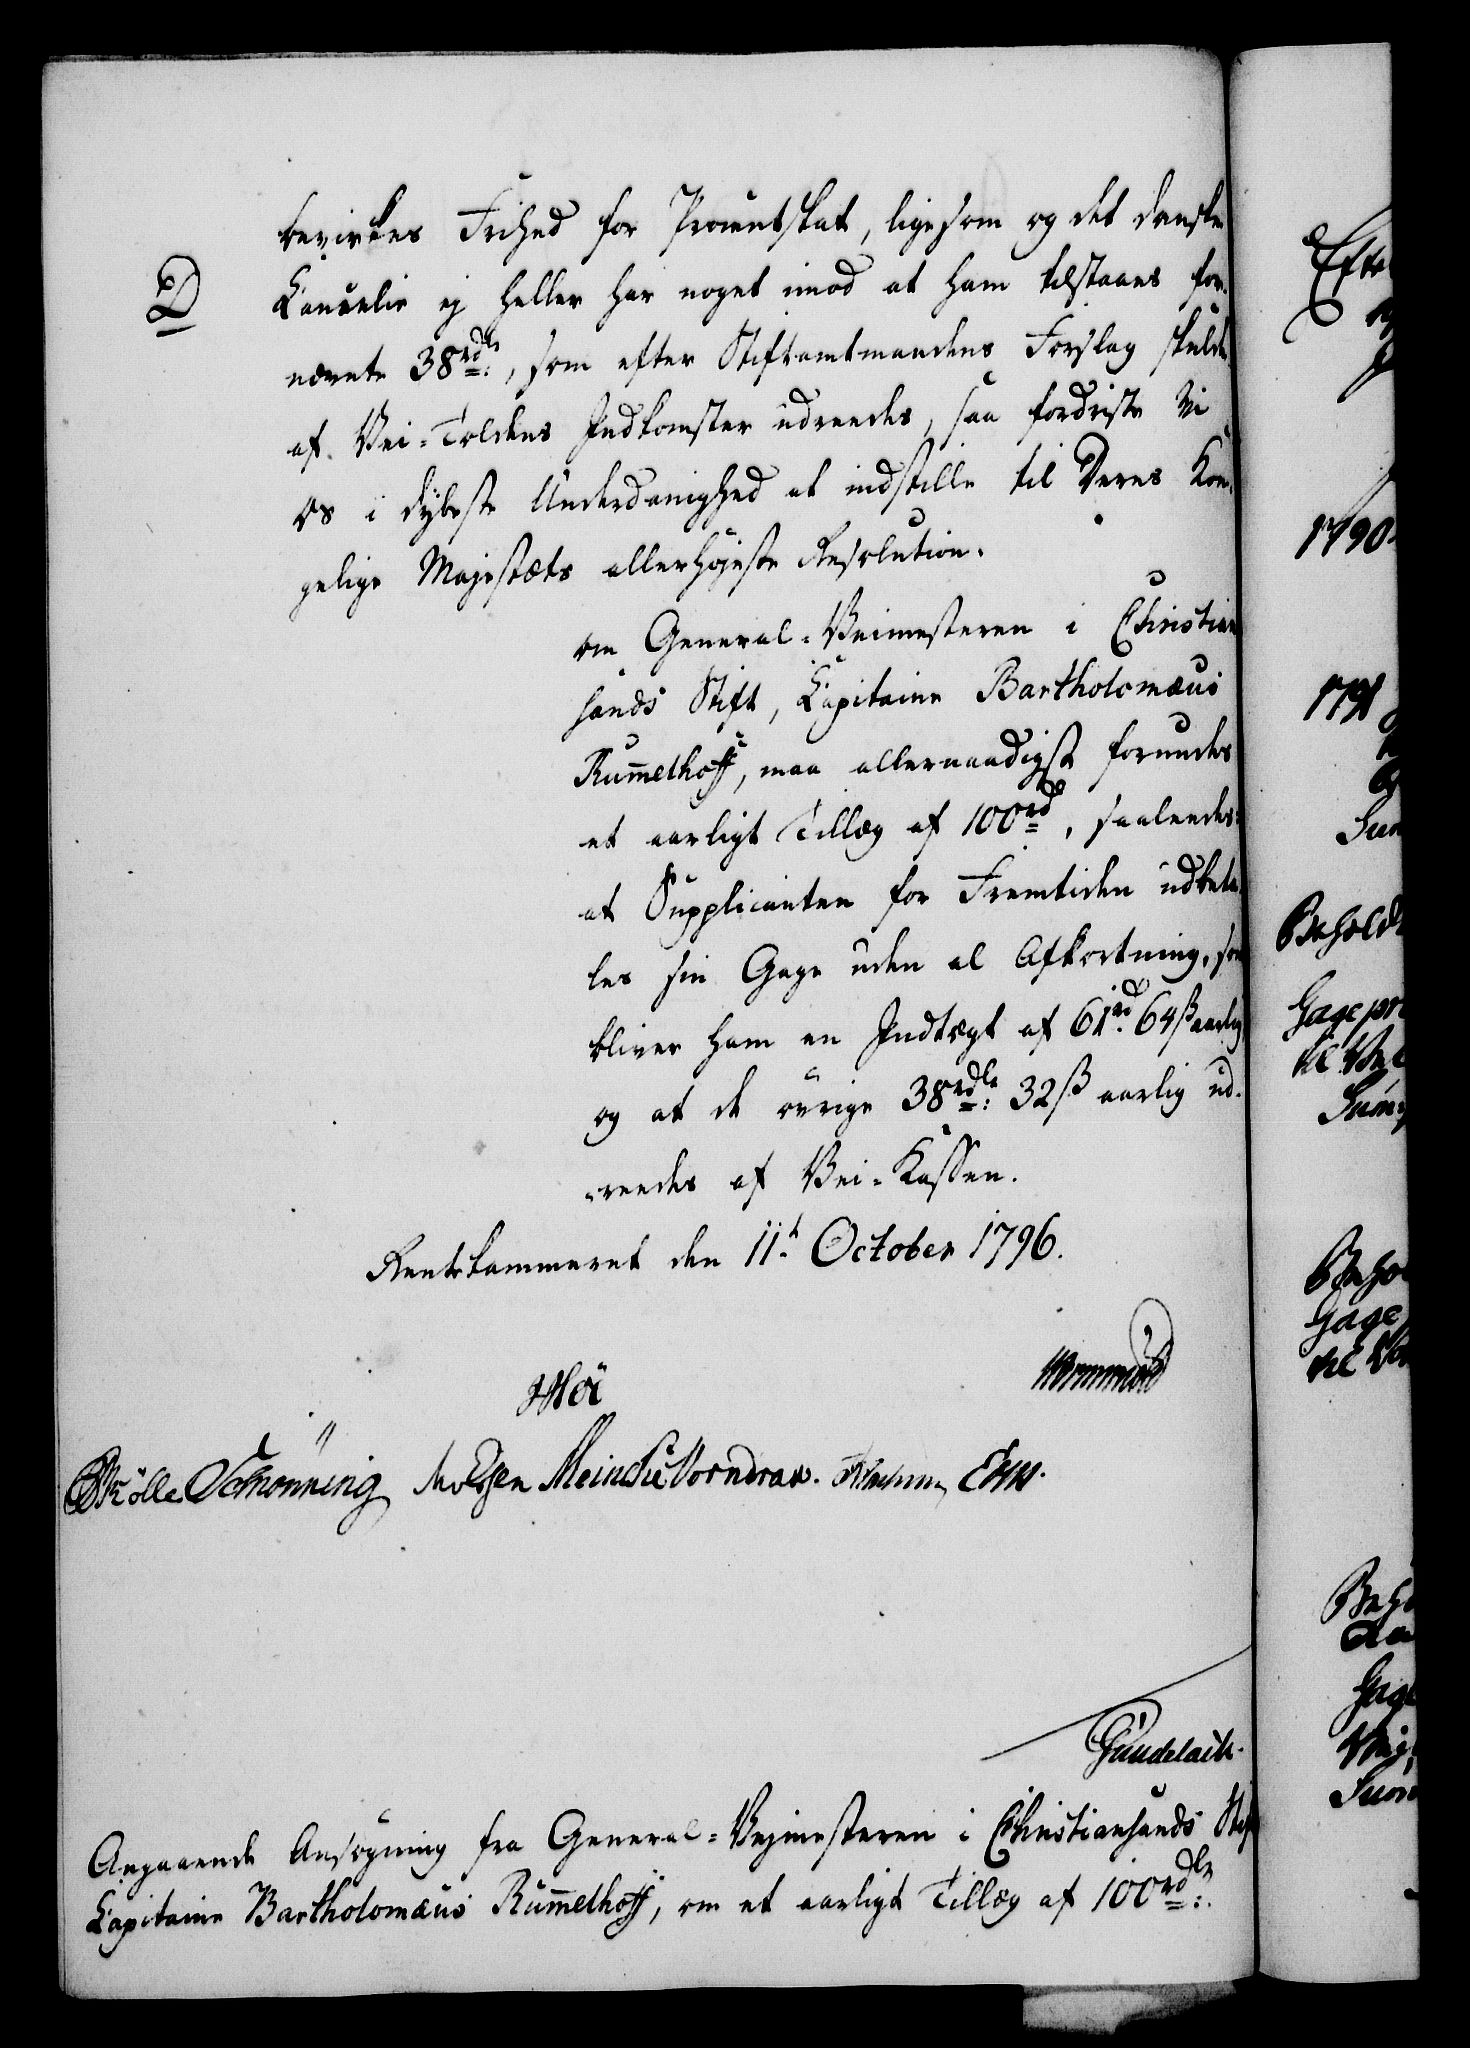 bevirkes Frihed for Procentskat, ligesom og det danske
D
Cancelie ej heller har noget imod at ham tilstaaes for-
nævnte 38 rdlr:, som efter Stiftamtmandens Forslag skulde
af Vei-Toldens Indkomster udreedes, saa fordriste Vi
os i dybeste Underdanighed at indstille til Deres Kon-
gelige Majestæts allerhøjeste Resolution.
om General-Veimesteren i Christian
sands Stift, Capitaine Bartholomæus
Rummelhoff, maa allernaadigst forundes
et aarligt Tillæg af 100 rd, saaledes:
at Supplicanten for Fremtiden udbeta-
les sin Gage uden al Afkortning, som
bliver ham en Indtægt af 61 rd. 64 ß aarlig
og at de øvrige 38 rdlr: 32 ß aarlig ud-
-reedes af Vei-Kassen.
Rentekammeret den 11t October 1796.
Schønning Meincke Vorndran.
Gundelach.
Angaaende Ansøgning fra General-Vejmesteren i Christiansands Stift
Capitaine Bartholomæus Rummelhoff, om et aarligt Tillæg af 100 rdlr:.
1790.
1791
Gage